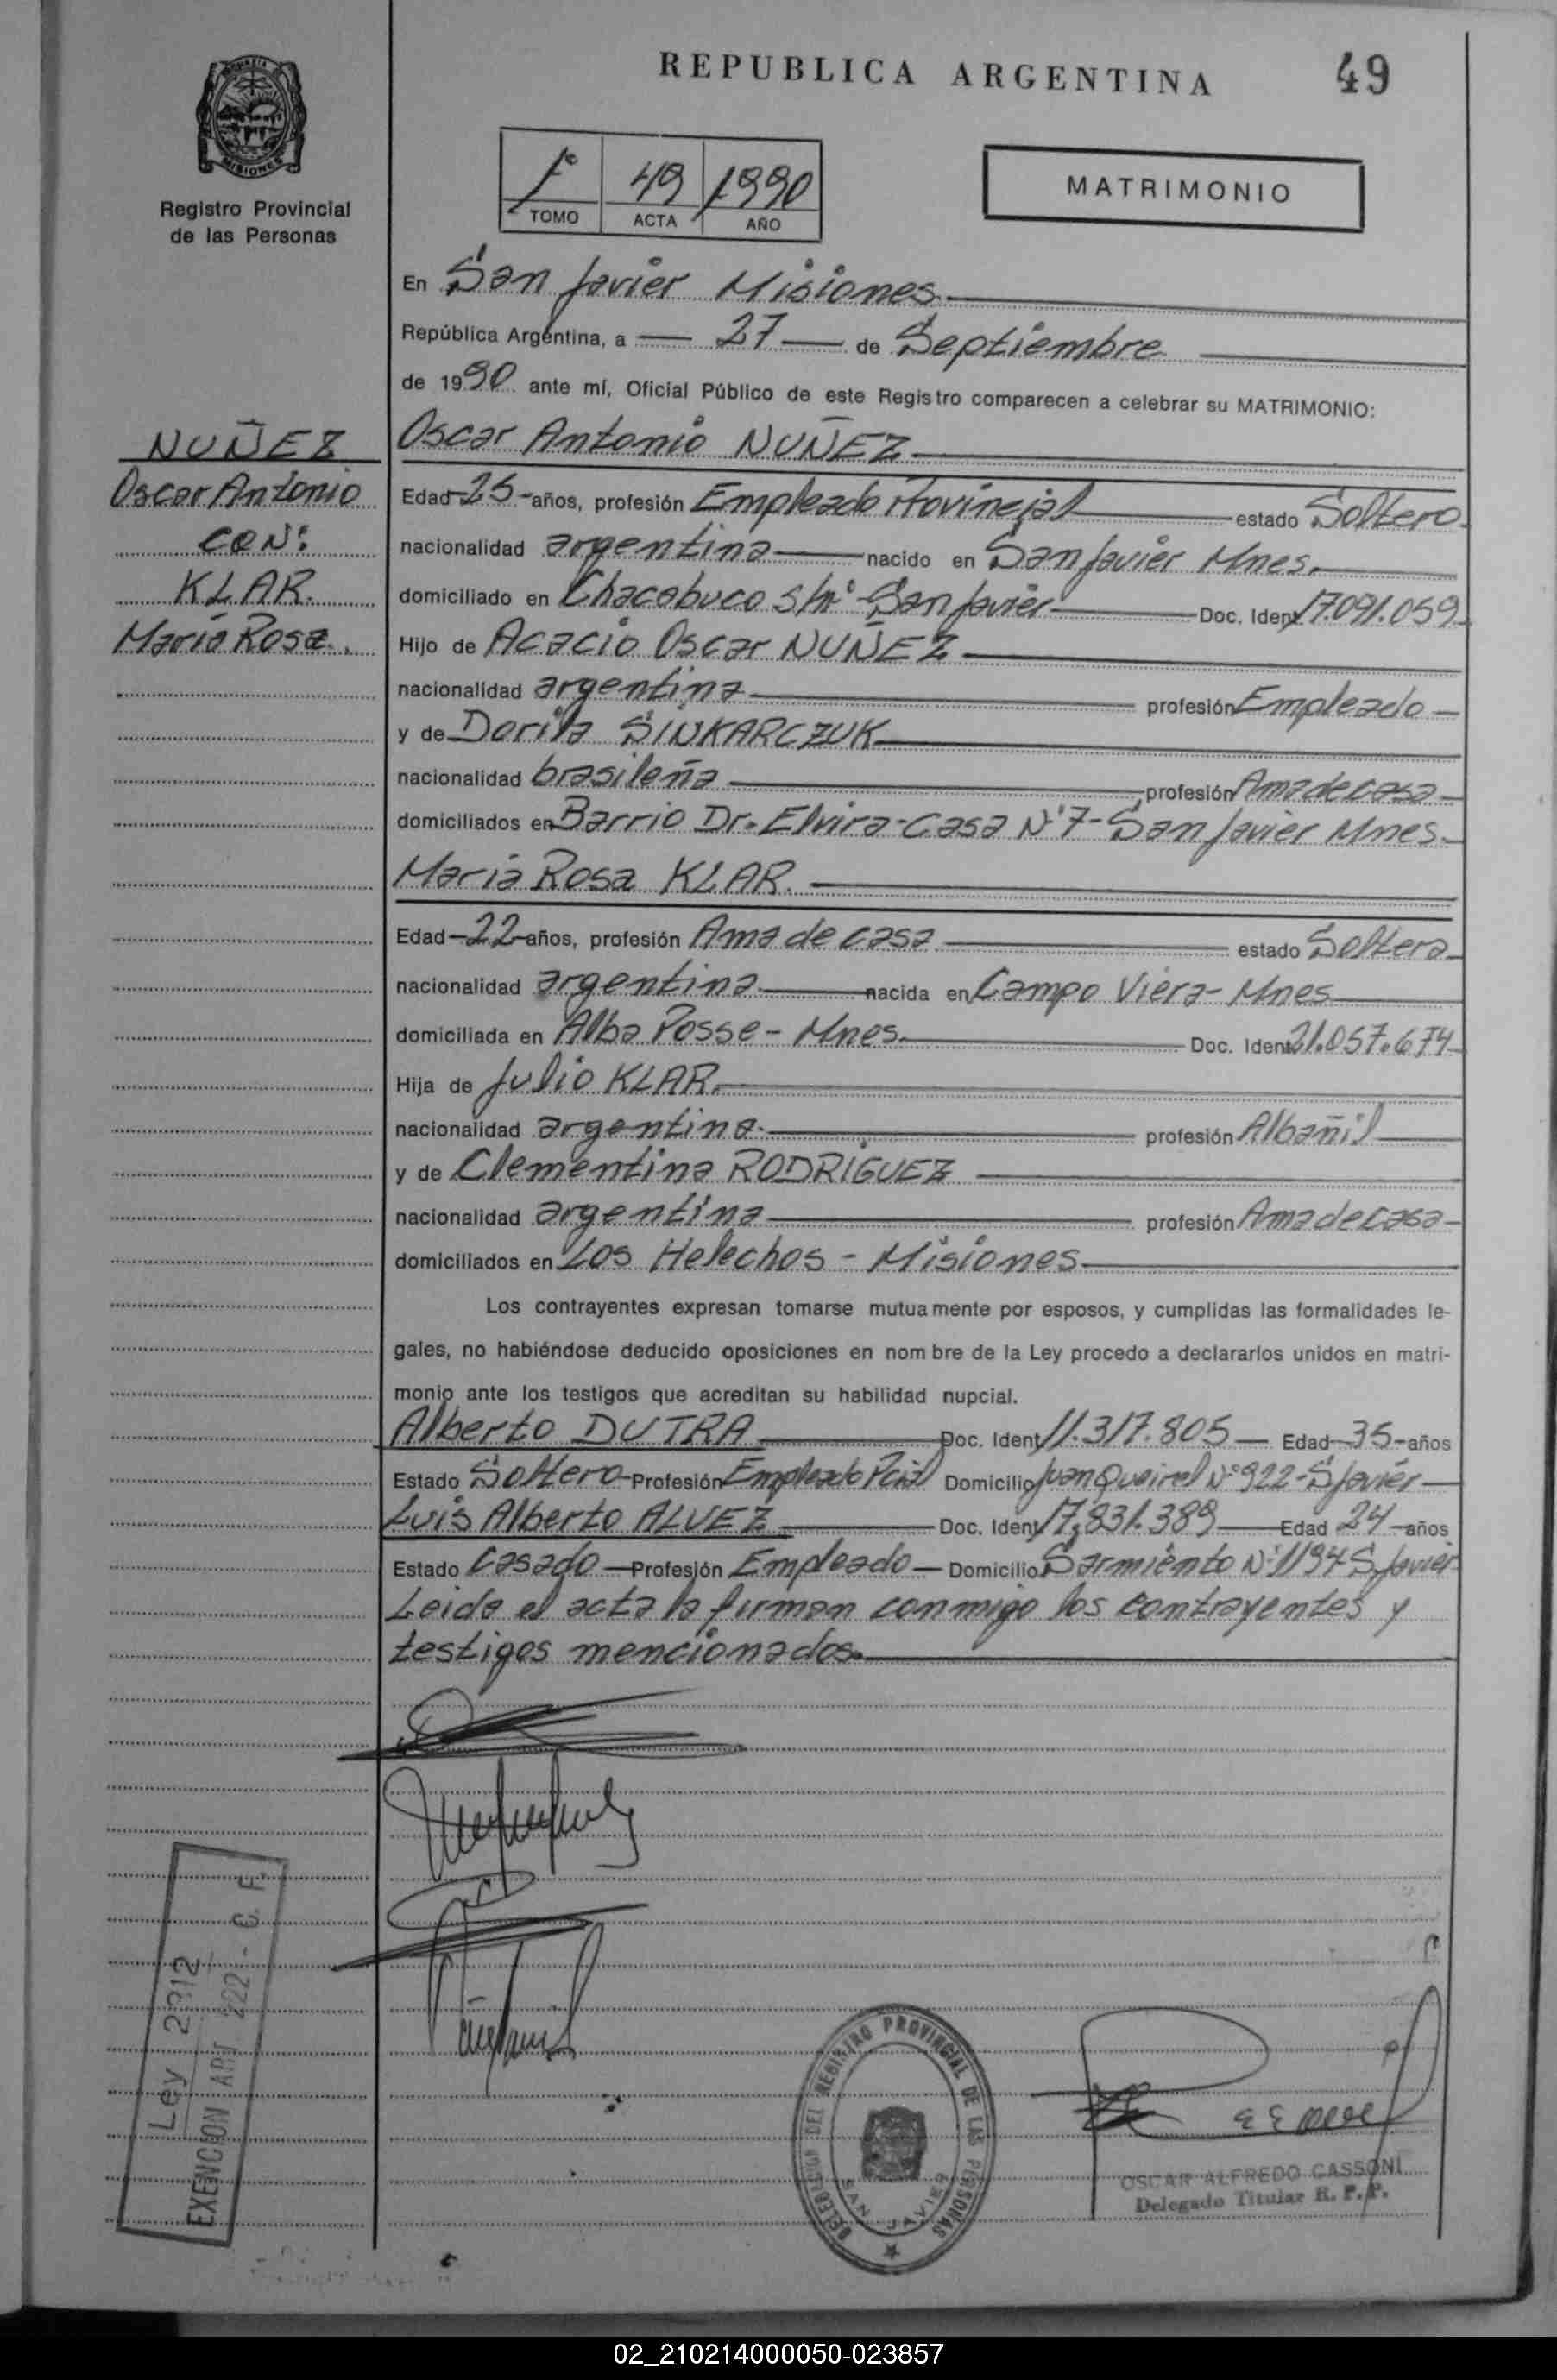 REPUBLICA ARGENTINA
49
PROVINCIA DE MISIONES
Registro Provincial
de las Personas
1° 49 1990
TOMO ACTA AÑO
MATRIMONIO
En San Javier Misiones
República Argentina, a — 27 — de Septiembre
de 1990 ante mí, Oficial Público de este Registro comparecen a celebrar su MATRIMONIO:
NUÑEZ
Oscar Antonio
CON:
KLAR.
María Rosa.
Oscar Antonio NUÑEZ
Edad -25- años, profesión Empleado Provincial estado Soltero
nacionalidad argentina nacido en San Javier Mnes.
domiciliado en Chacabuco S/n° San Javier Doc. Ident 17.091.059
Hijo de Acacio Oscar NUÑEZ
nacionalidad argentina profesión Empleado
y de Dorila SINKARCZUK
nacionalidad brasileña profesión Ama de casa
domiciliados en Barrio Dr. Elvira-Casa N°7-San Javier Mnes.
María Rosa KLAR.
Edad -22- años, profesión Ama de casa estado Soltera
nacionalidad argentina nacida en Campo Viera- Mnes
domiciliada en Alba Posse - Mnes. Doc. Ident 21.057.674
Hija de Julio KLAR.
nacionalidad argentina. profesión Albañil
y de Clementina RODRIGUEZ
nacionalidad argentina profesión Ama de casa
domiciliados en Los Helechos - Misiones
Los contrayentes expresan tomarse mutuamente por esposos, y cumplidas las formalidades le-
gales, no habiéndose deducido oposiciones en nombre de la Ley procedo a declararlos unidos en matri-
monio ante los testigos que acreditan su habilidad nupcial.
Alberto DUTRA Doc. Ident 11.317.805 — Edad -35- años
Estado Soltero Profesión Empleado Pcial Domicilio Juan Queirel N°922-S Javier
Luis Alberto ALVEZ Doc. Ident 17.831.389 Edad 24 años
Estado Casado Profesión Empleado Domicilio Sarmiento N°1194 S.Javier
Leida el acta la firman conmigo los contrayentes y
testigos mencionados.
Ley 2912
EXENCION ART 222 - C. F.
DELEGACION DEL REGISTRO PROVINCIAL DE LAS PERSONAS
SAN JAVIER
OSCAR ALFREDO CASSONI
Delegado Titular R. P. P.
02_210214000050-023857